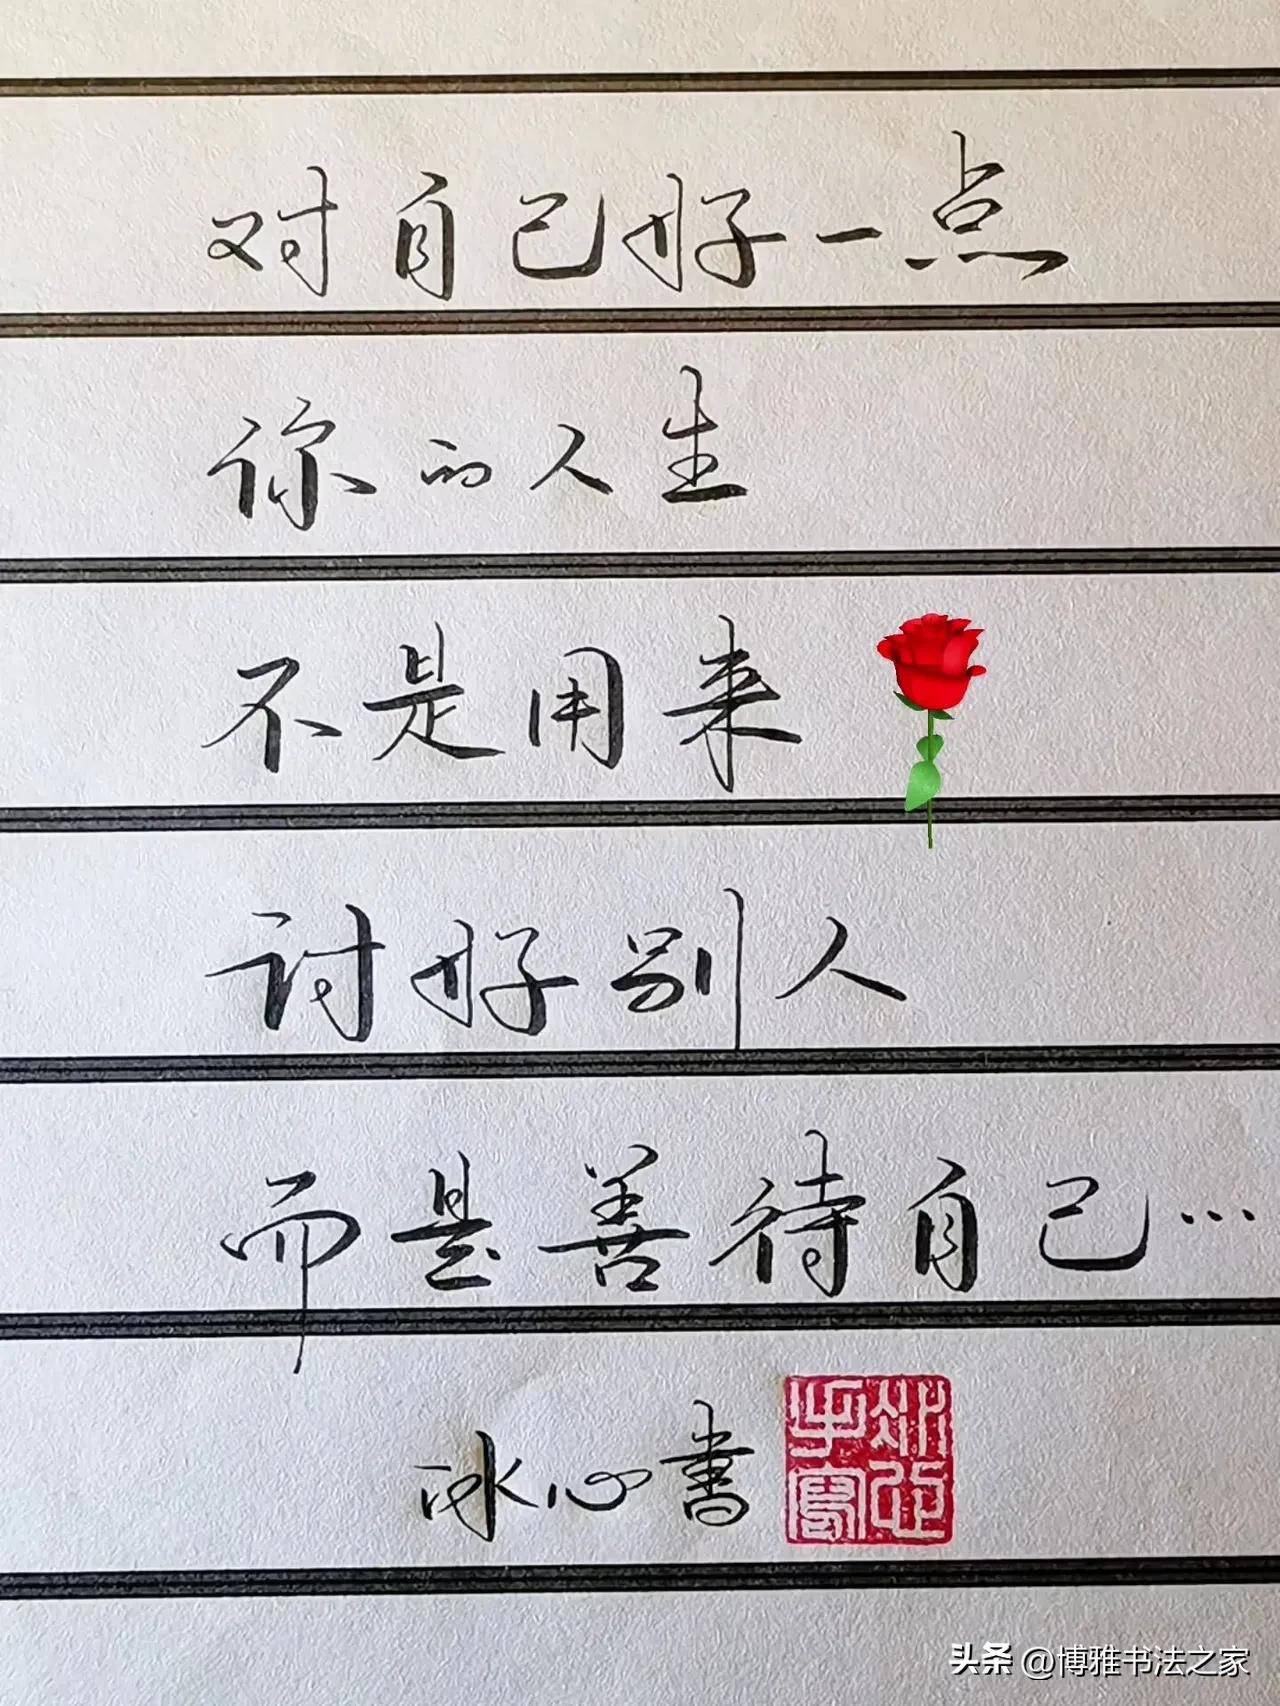 对自己好一点
你的人生
不是用来
讨好别人
而是善待自己…
冰心書
冰心手寫
头条 @博雅书法之家